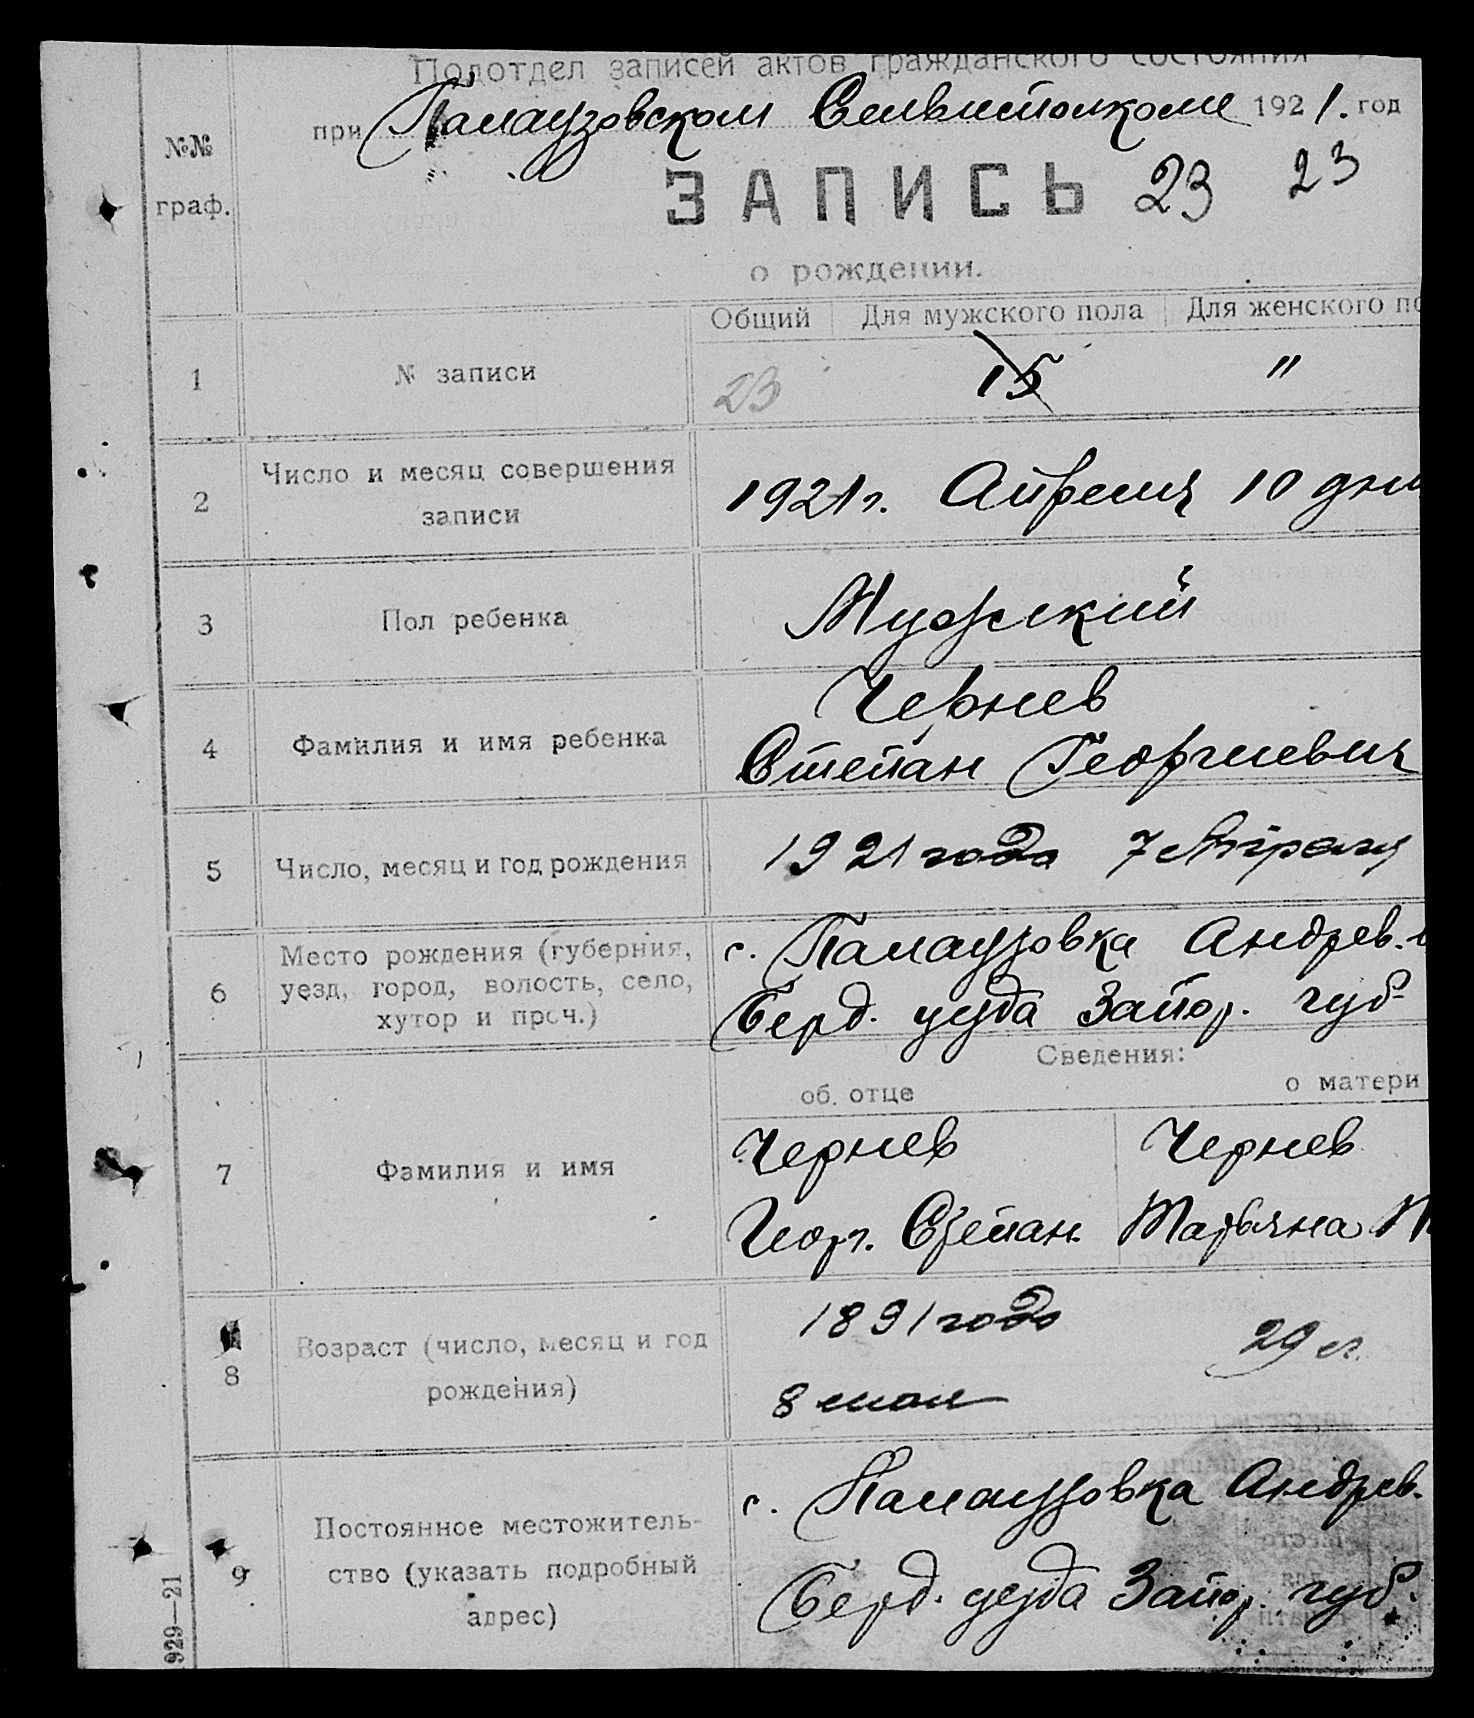 Подотдел записей актов гражданского состояния
при Палаузовском Сельисполкоме 1921. год
№№ граф.
ЗАПИСЬ 23 23
о рождении.
Общий Для мужского пола Для женского по
1 № записи 23 15 "
2 Число и месяц совершения
записи
1921 г. Апреля 10 дня
3 Пол ребенка Мужский
4 Фамилия и имя ребенка
Чернев
Степан Георгиевич
5 Число, месяц и год рождения 1921 года 7 Апреля
6 Место рождения (губерния,
уезд, город, волость, село,
хутор и проч.)
с. Палаузовка Андрев.
Берд. уезда Запор. губ.
Сведения:
об. отце о матери
7 Фамилия и имя
Чернев Чернев
Геор. Степан. Татьяна
8 Возраст (число, месяц и год
рождения)
1891 года 29 л.
8 мая
9 Постоянное местожитель-
ство (указать подробный
адрес)
с. Палаузовка Андрев.
Берд. уезда Запор. губ.
929—21